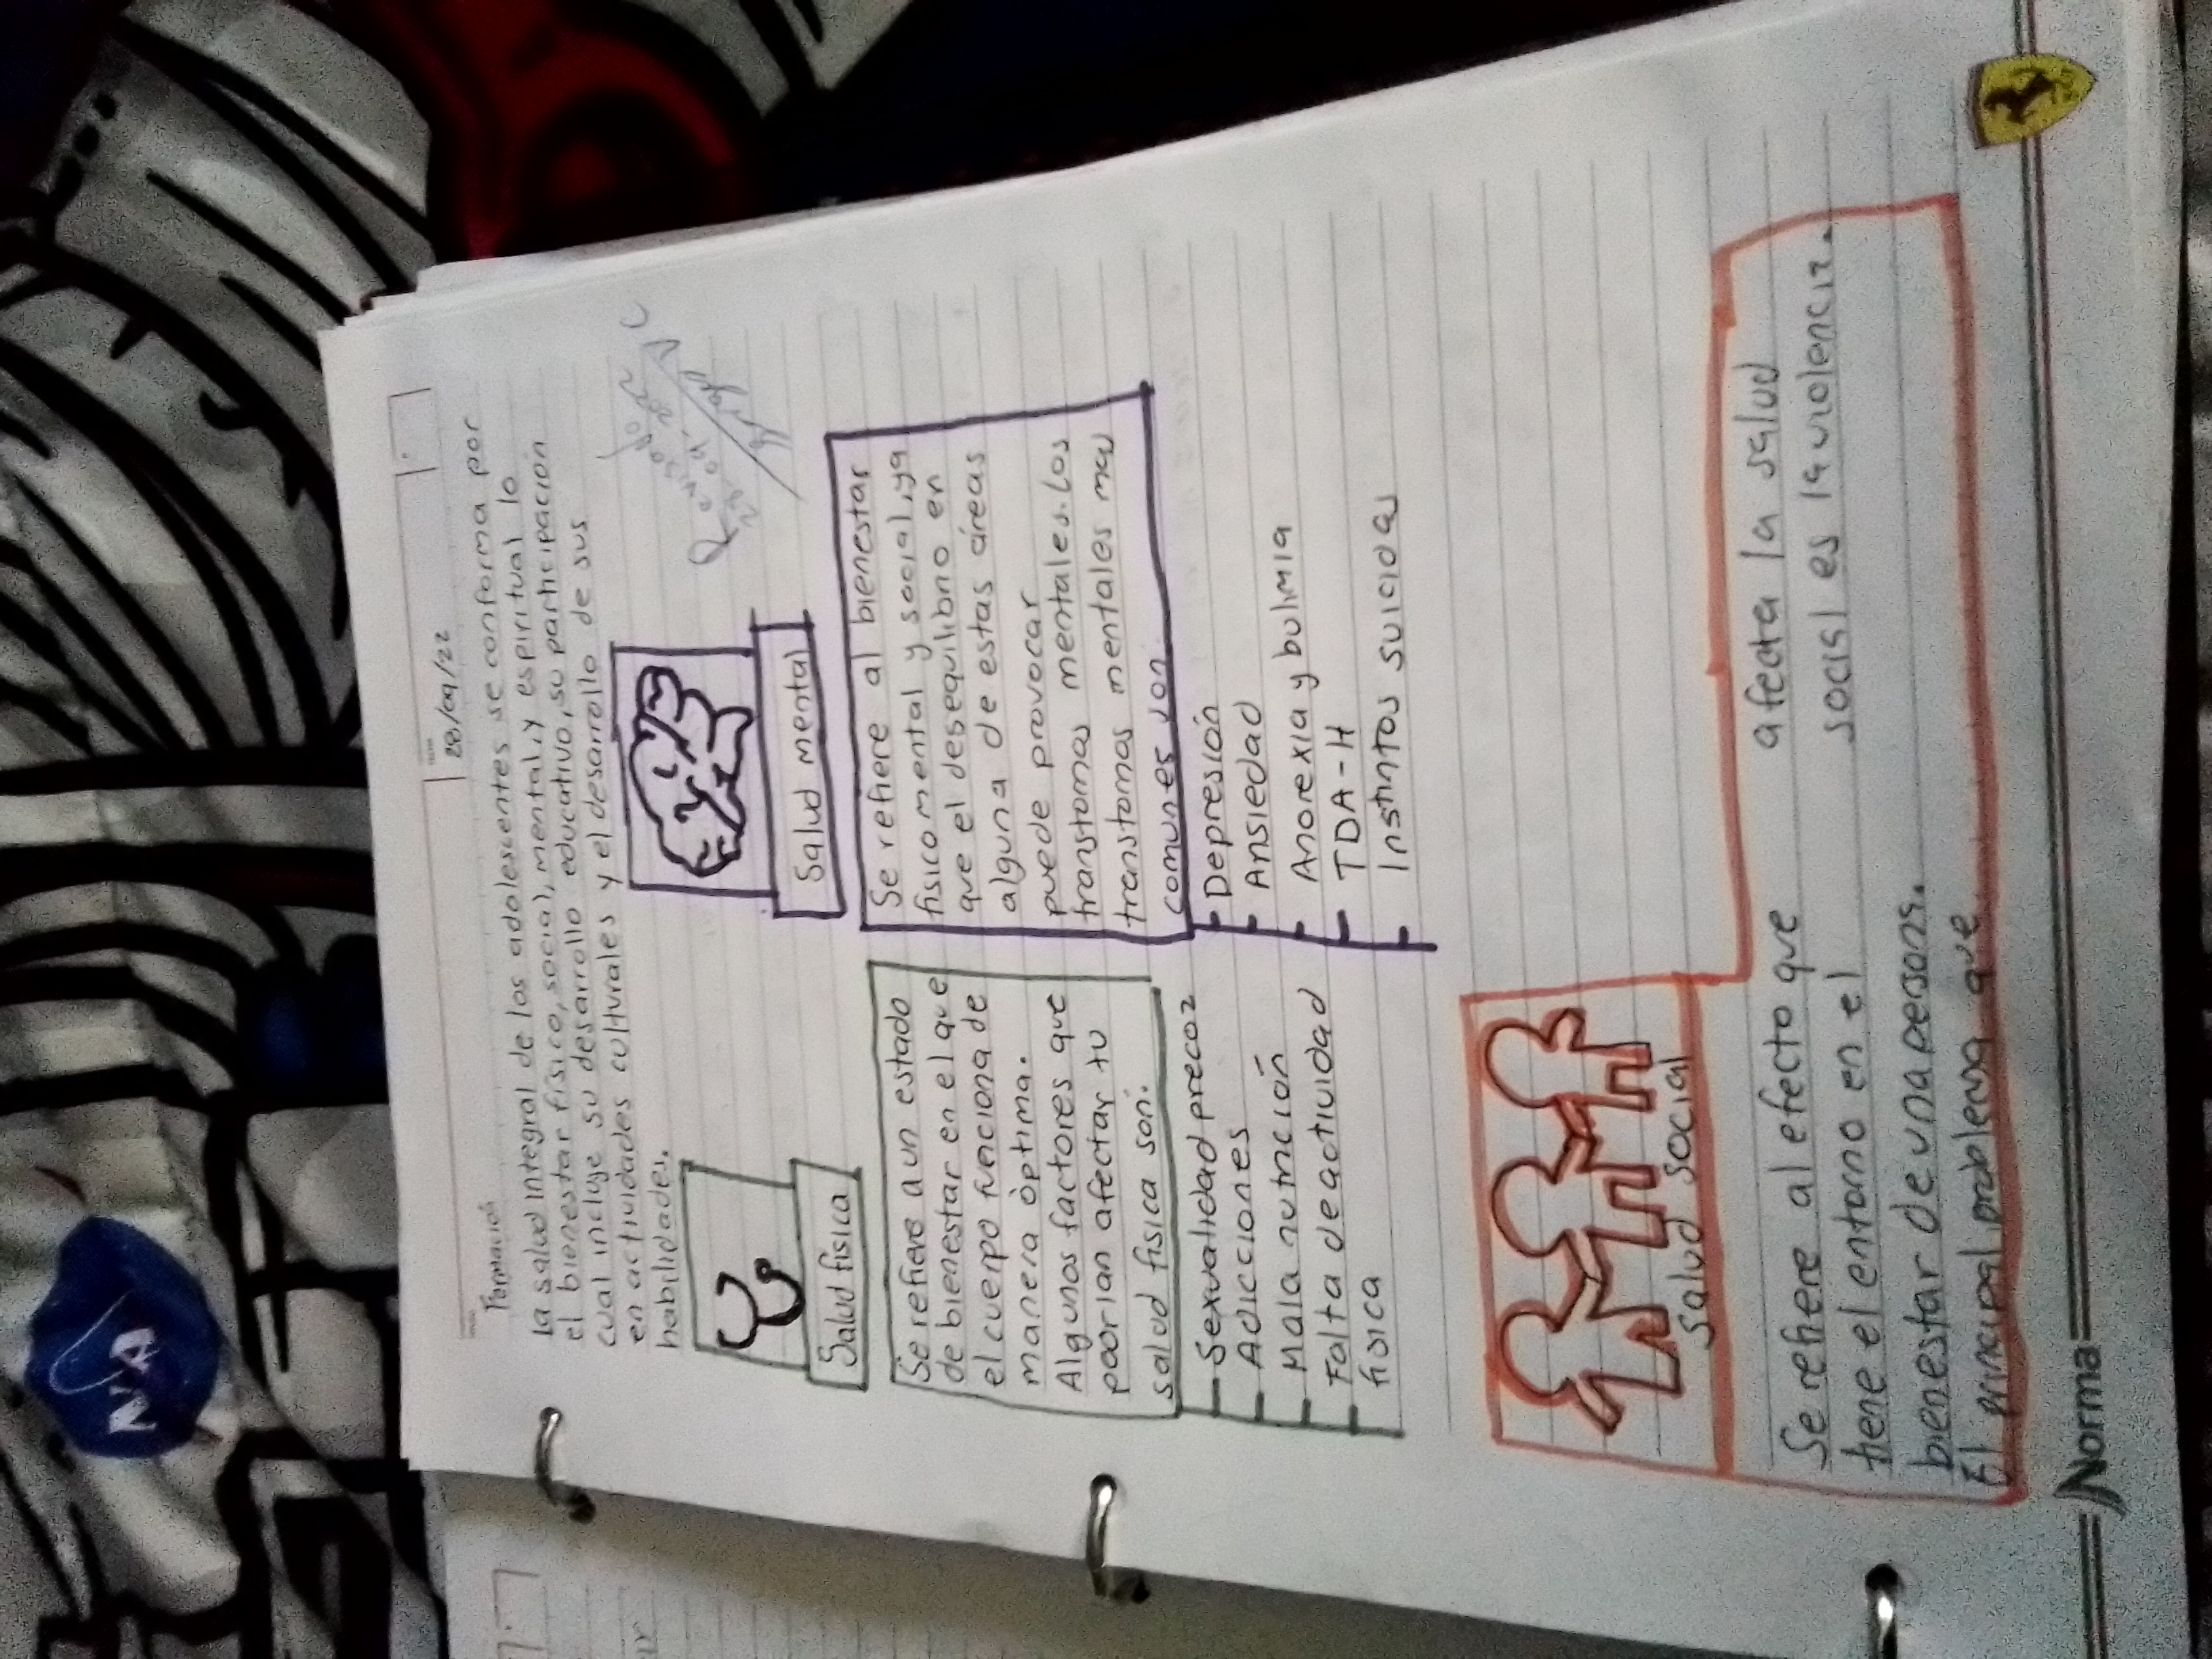 Formación
28/09/22
la salud integral de los adolescentes se conforma por
el bienestar físico, social, mental, y espiritual lo
cual incluje su desarrollo educativo, su participación
en actividades culturales y el desarrollo de sus
habilidades.
Revisado
Salud física
Se refiere a un estado
de bienestar en el que
el cuerpo funciona de
manera óptima.
Algunos factores que
poorian afectar tu
salud física son:
Sexualidad precoz
Adicciones
Mala nutrición
Falta de actividad
física
Salud mental
Se refiere al bienestar
fisico mental y social, ya
que el desequilibrio en
alguna de estas áreas
puede provocar
transtornos mentales. Los
transtornos mentales mas
comunes son
Depresión
Ansiedad
Anorexia y bulimia
TDA-H
Instintos suicidas
Salud social
Se refiere al efecto que
tiene el entorno en el
bienestar de una persona.
El principal problema que
afecta la salud
social es la violencia.
Norma